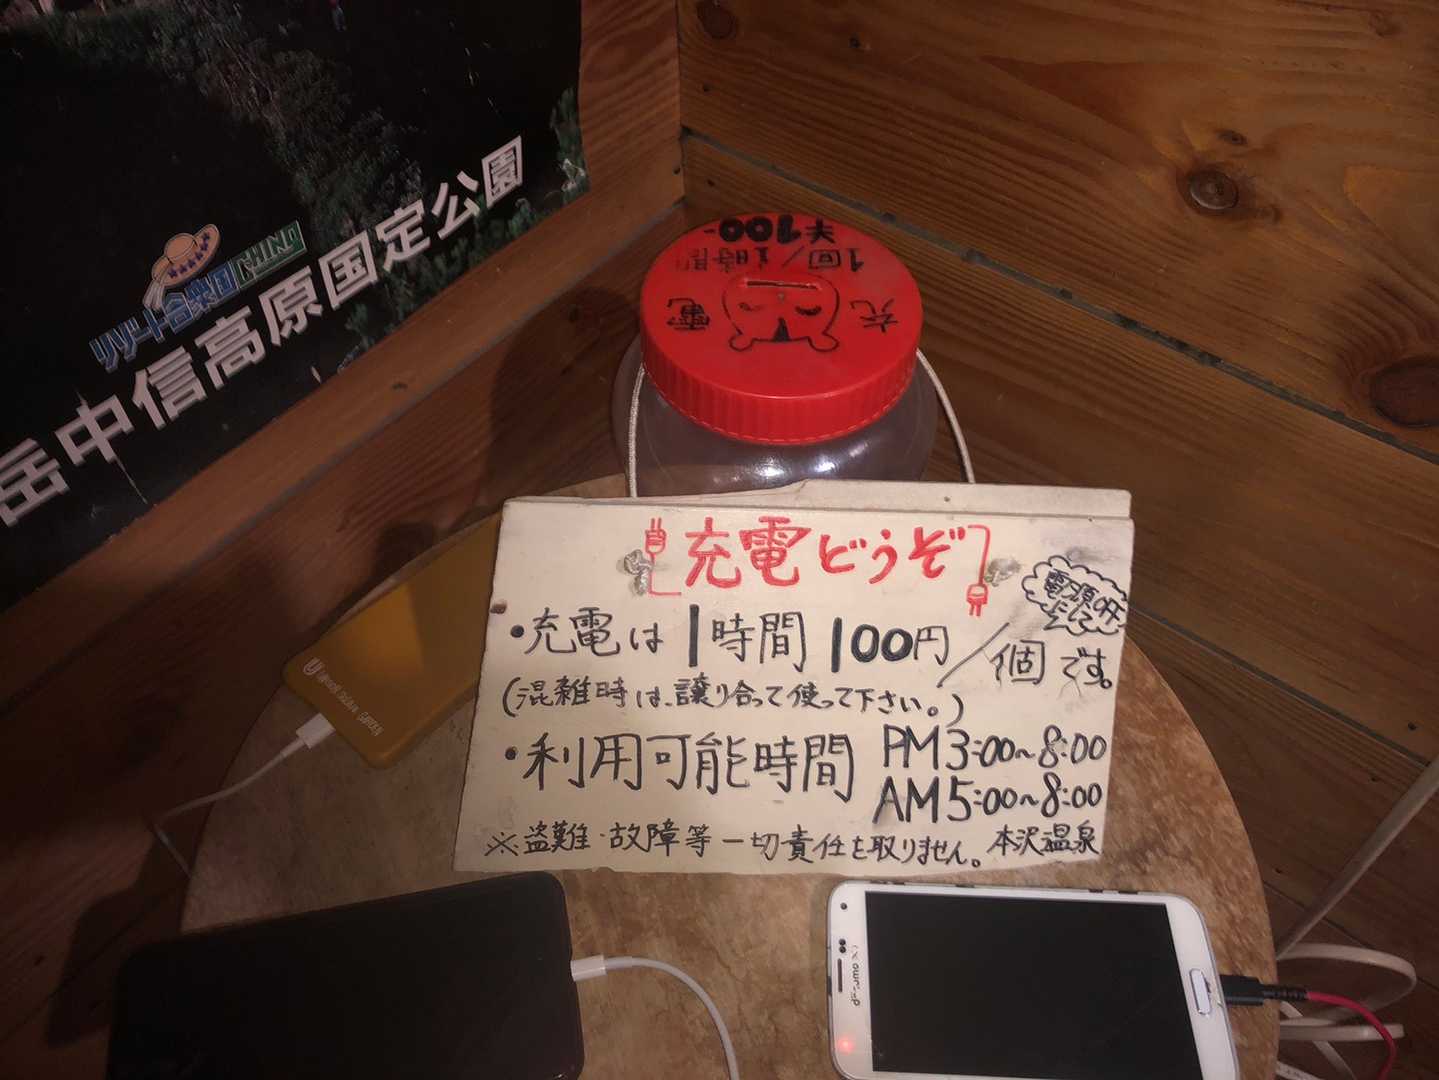 リゾート合衆国 CHINO
岳中信高原国定公園
1回/1時間
¥100-
充電
充電どうぞ
電源OFF
にして
・充電は1時間100円/個です。
(混雑時は、譲り合って使って下さい。)
・利用可能時間 PM3:00~8:00
AM5:00~8:00
※盗難・故障等一切責任を取りません。本沢温泉
docomo